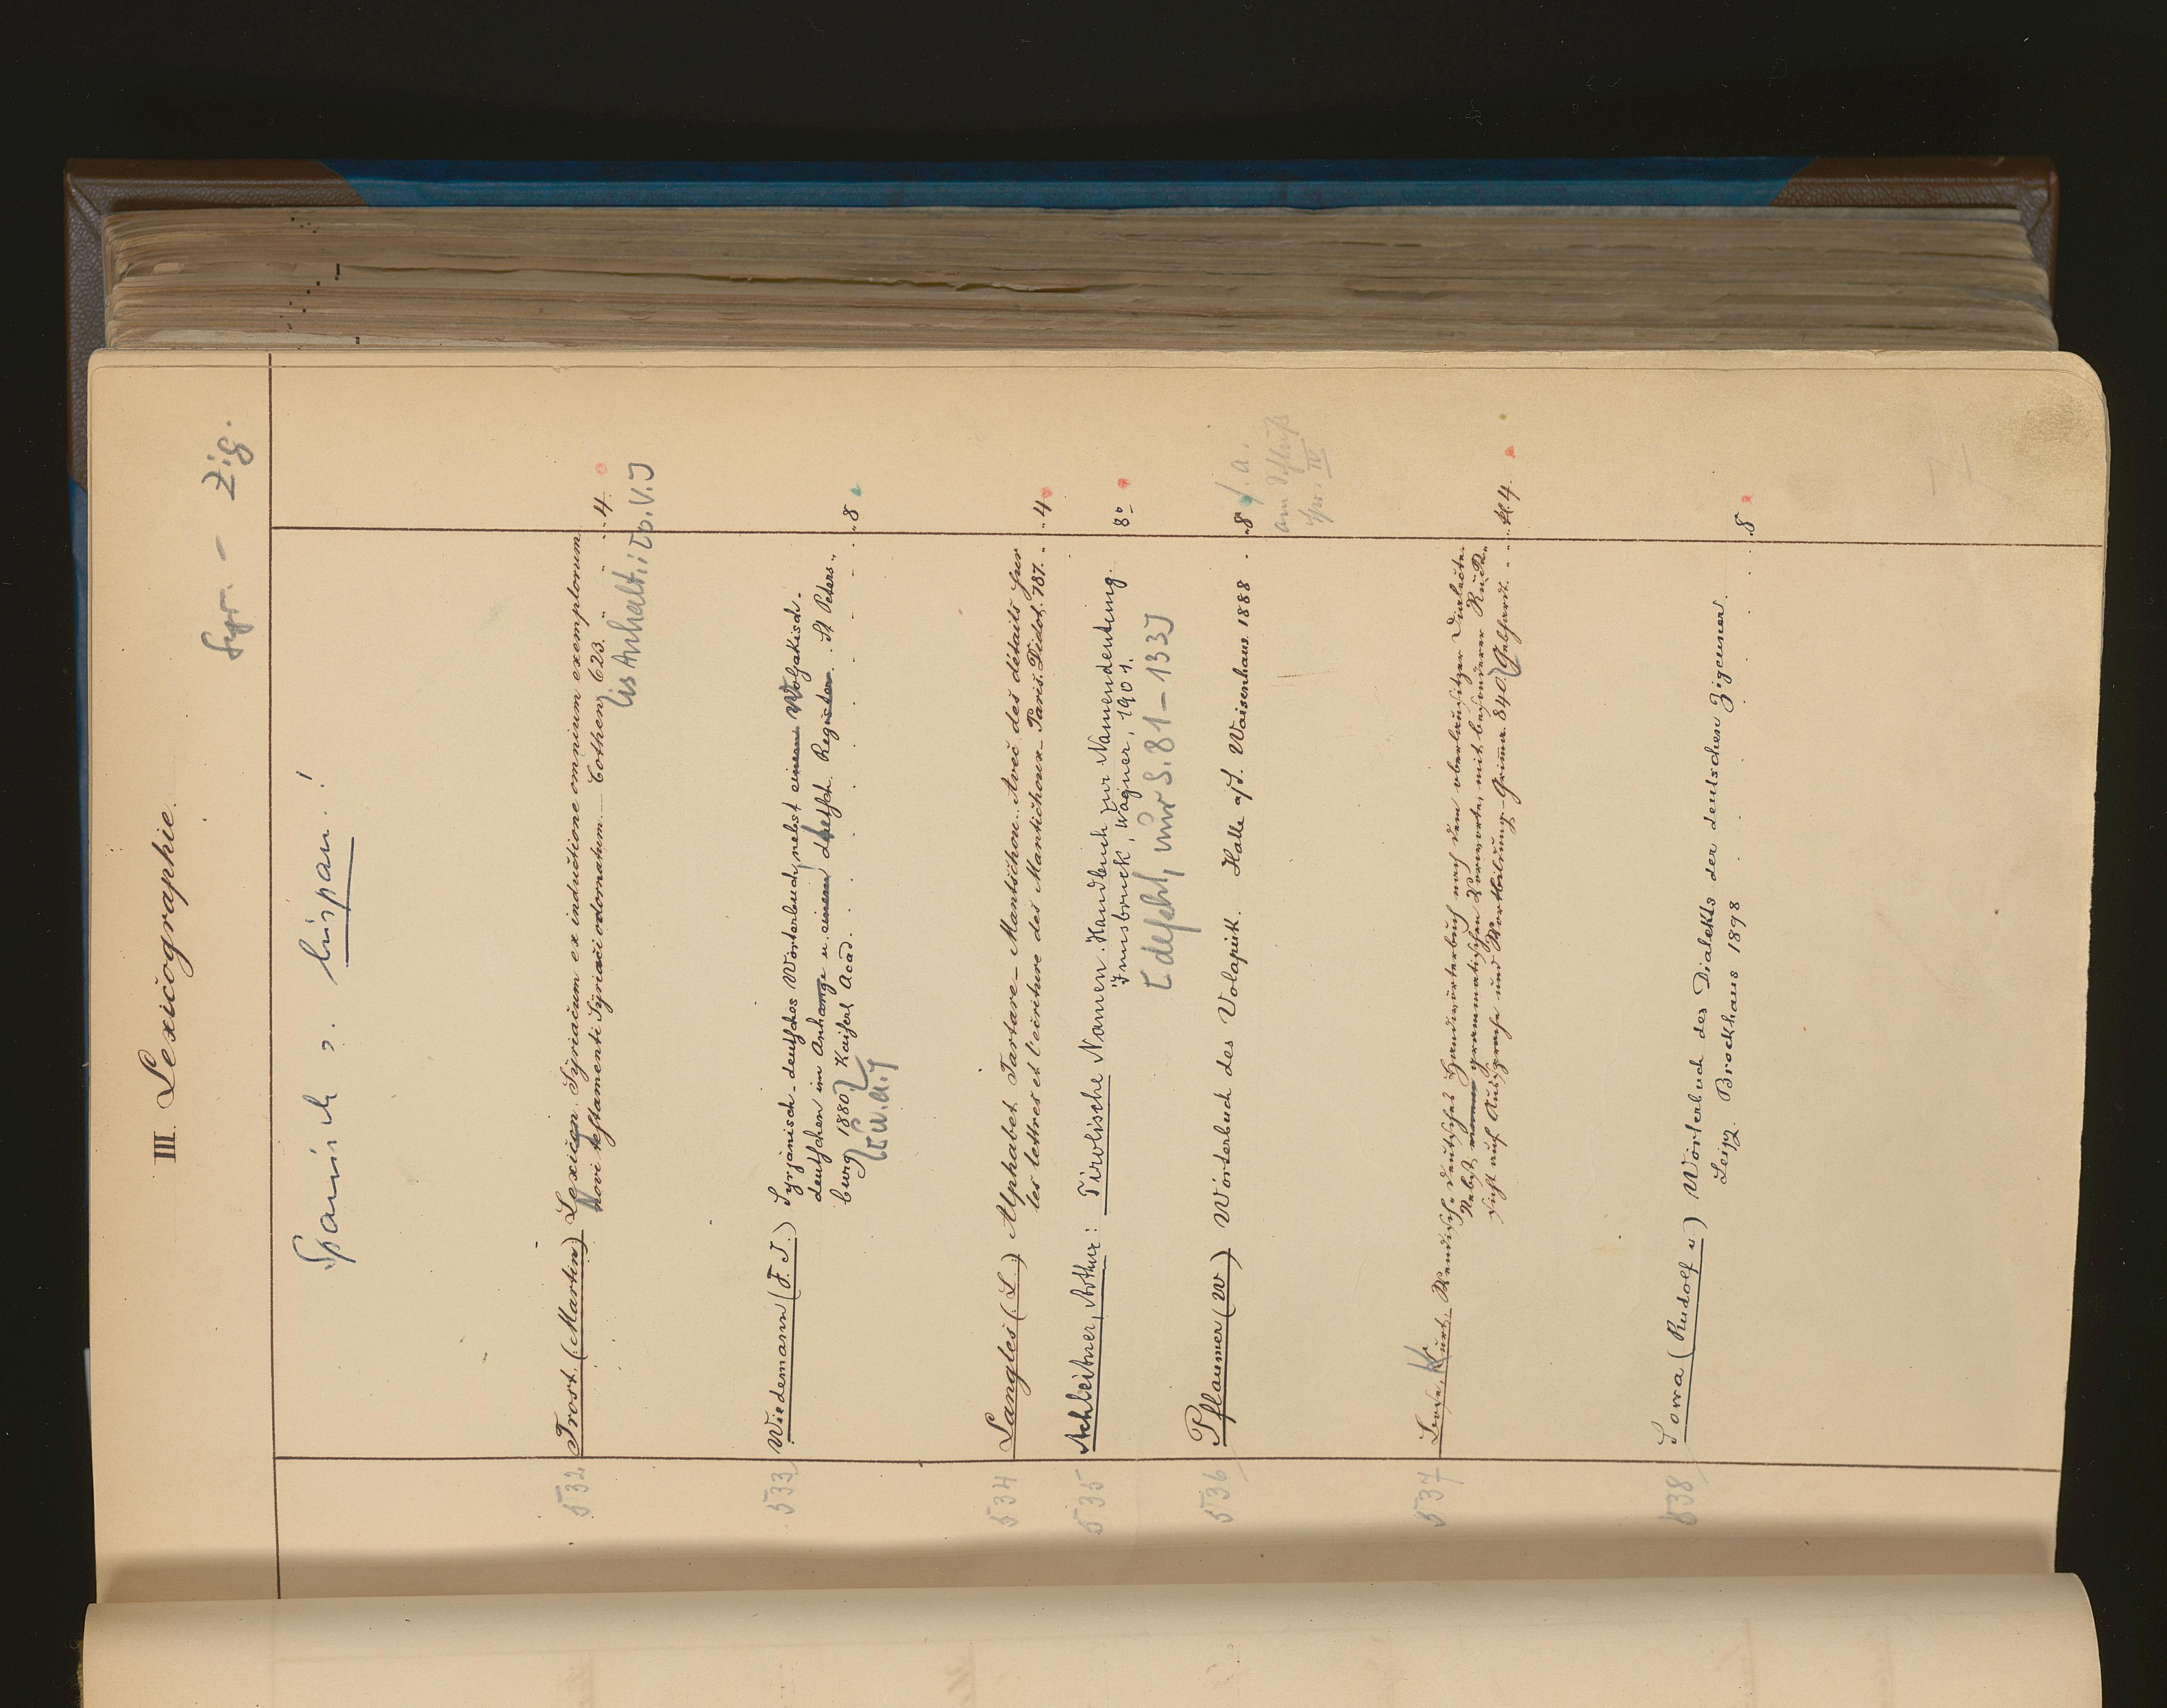 III. Lexicographie.
Syr. - Zig.
Spanisch s. hispan.!
532 Trost. (Martin) Lexicon Syriacum ex inductione omnium exemplorum
Novi testamenti Syriaci adornatum. Cothen, 623. 4.
[is Anhalti: Ty. V.]
533 Wiedemann (F. J.) Syrjänisch-deutsches Wörterbuch, nebst einem Wotjakisch-
deutschen im Anhange u. einem deutsch. Register. St Peters-
burg 1880. Kaiserl Acad. 8
[K. u. a.]
534 Langles (L.) Alphabet Tartare-Mantchou. Avec des détails sur
les lettres et l'ecriture des Mantchoux. Paris. Didot. 787. 4
535 Achleitner, Arthur: Tirolische Namen. Handbuch zur Namendeutung.
Innsbruck, Wagner, 1901. 8°
[defekt, nur S. 81-133]
536 Pflaumer (W) Wörterbuch des Volapük. Halle a/S. Waisenhaus 1888 8
s. a.
am Schluß
IV
537 Bose, Kurt, Wendisch-deutsches Handwörterbuch nach dem oberlausitzer Dialecte.
Nebst grammatischem Vorworte, mit besonderer Rück-
sicht auf Aussprache und Wortbildung. Grimma 840. Gebhardt. 4.
538 Sowa (Rudolf v) Wörterbuch des Dialekts der deutschen Zigeuner.
Leipz. Brockhaus 1898 8